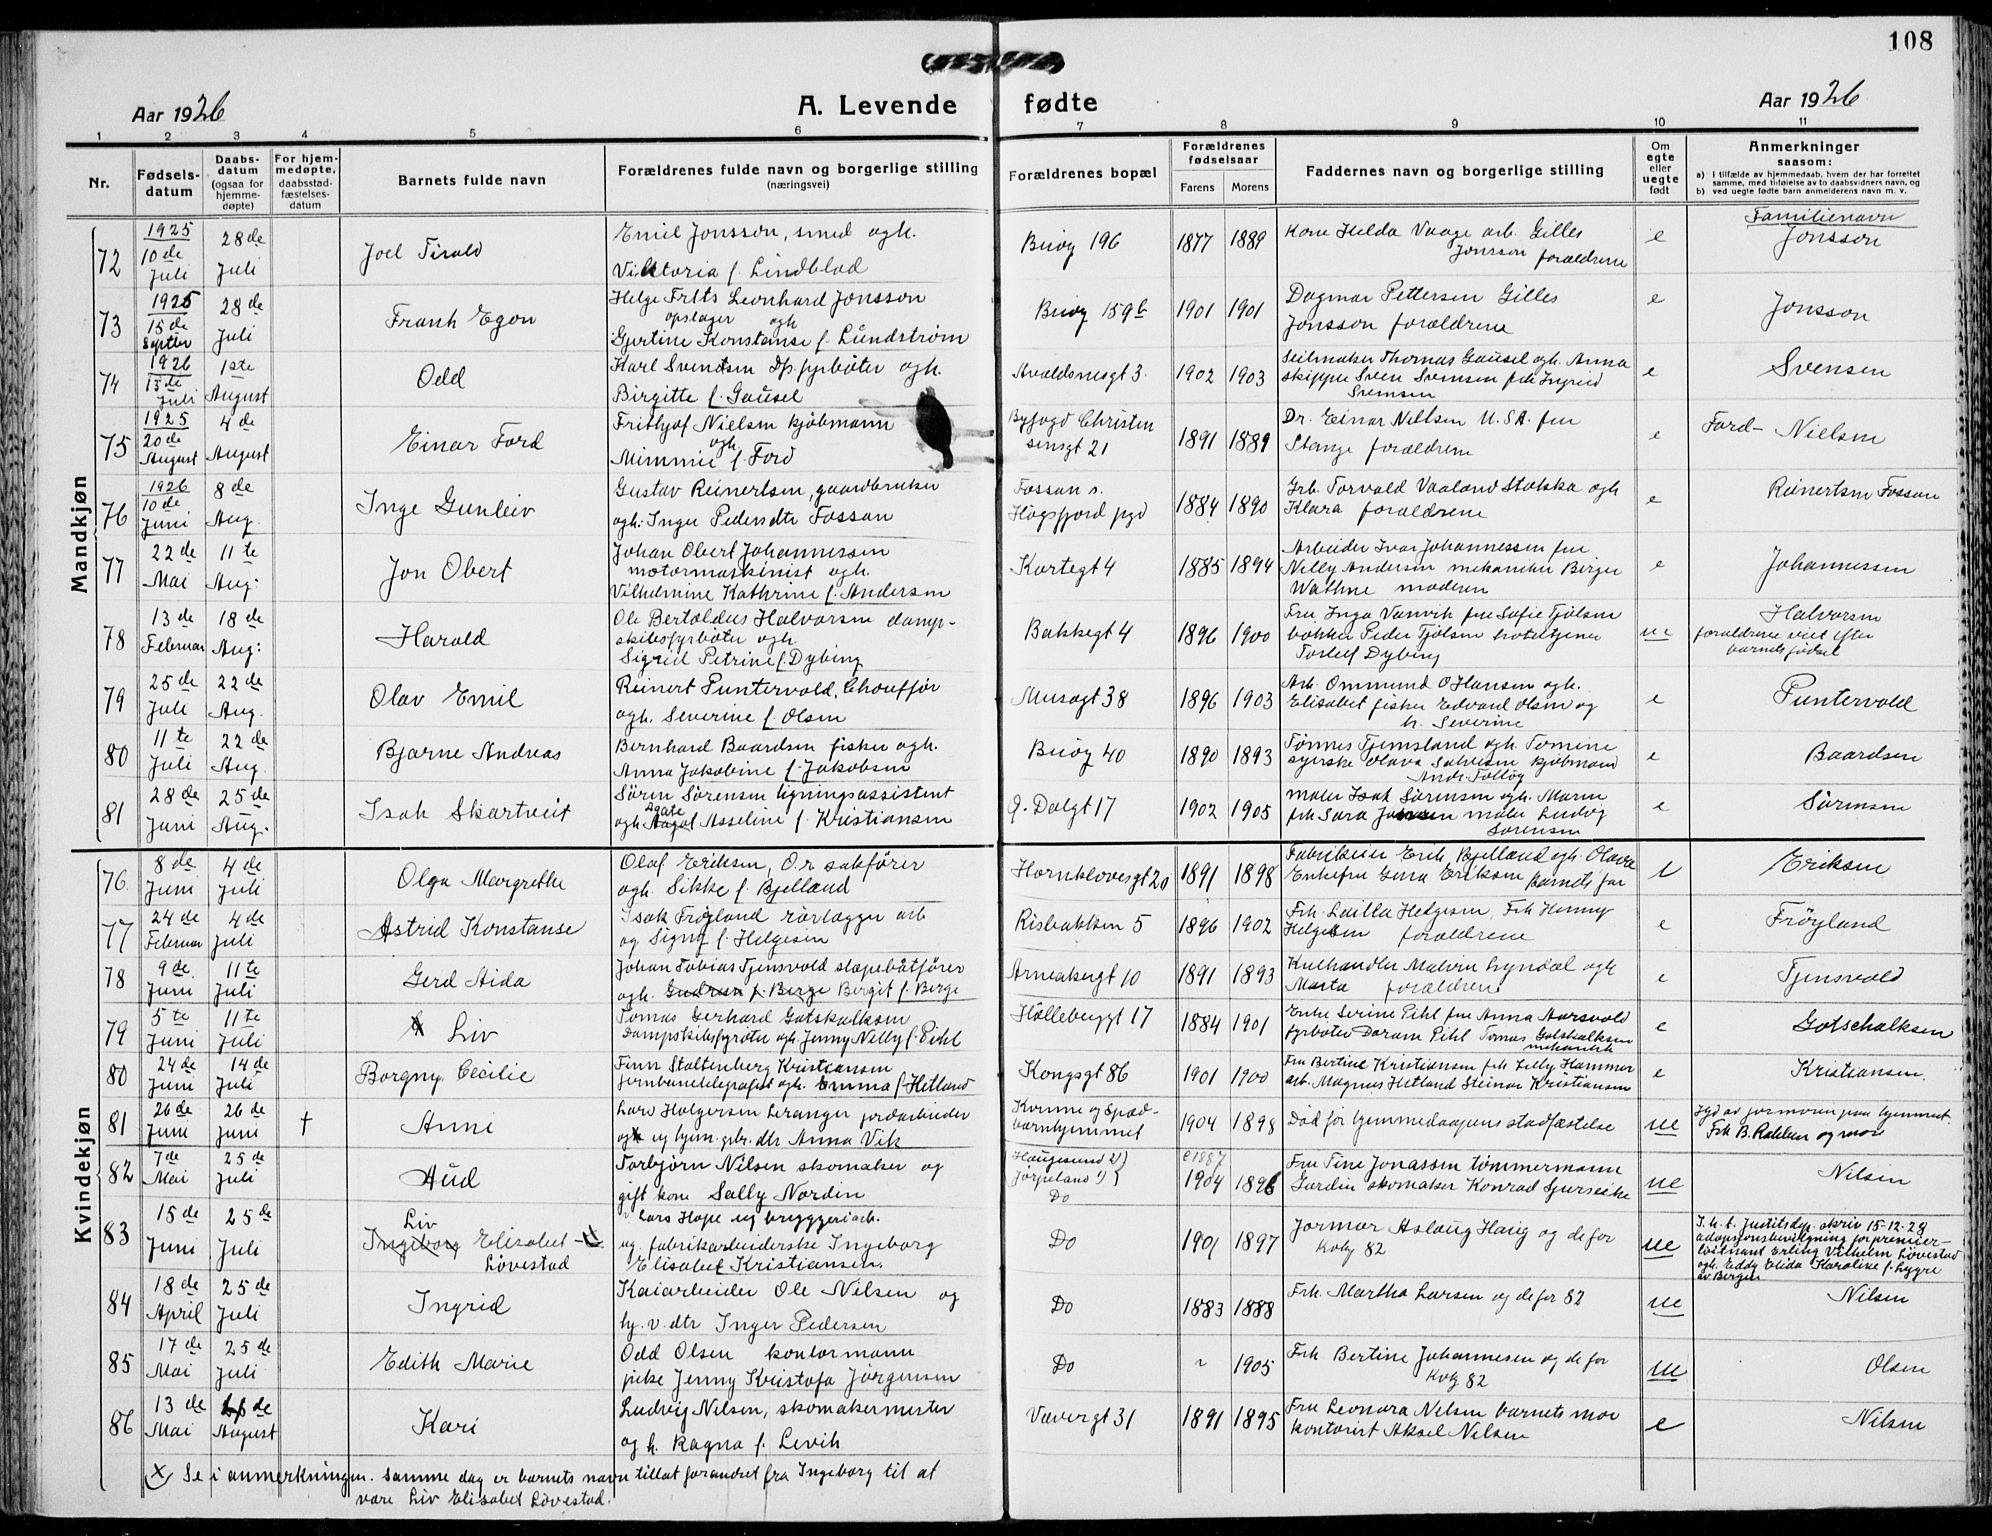 108
Aar 1926
A. Levende fødte
Aar 1926
1 2 3 4 5 6 7 8 9 10 11
Nr.
Fødsels-
datum
Daabs-
datum
(ogsaa for
hjemme-
døpte)
For hjem-
medøpte,
daabsstad-
fæstelses-
datum
Barnets fulde navn
Forældrenes fulde navn og borgerlige stilling
(næringsvei)
Forældrenes bopæl
Forældrenes
fødselsaar
Farens Morens
Faddernes navn og borgerlige stilling
Om
egte
eller
uegte
født
Anmerkninger
saasom:
a) i tilfælde av hjemmedaab, hvem der har forrettet
samme, med tilføielse av to daabsvidners navn, og
b) ved uegte fødte barn anmelderens navn m. v.
Familienavn
Mandkjøn
72
1925
10de
Juli
28de
Juli
Joel Tirald
Emil Jonsson, smed ogh.
Viktoria f. Lindblad
Buøy 196
1877 1889
Kone Helda Vaage arb. Gilles
Jonsson forældrene
e
Jonsson
73
1925
15de
Septbr
28de
Juli
Frank Egon
Helge Frits Leonhard Jonsson
opslager ogh
Gjertine Konstanse f. Lundstrøm
Buøy 159b
1901 1901
Dagmar Pettersen Gilles
Jonsson forældrene
e
Jonsson
74
1926
13de
Juli
1ste
August
Odd
Karl Svendsen Dp.fyrbøter ogh.
Birgitte f. Gausel
Avaldsnesgt 3.
1902 1903
Seilmaker Thomas Gausel ogh. Anna
skipper Sven Svensen frk Ingrid
Svensen
e
Svensen
75
1925
20de
August
4de
August
Einar Ford
Frithjof Nielsen kjøbmann
ogh
Mimmie f. Ford
Byfogd Christen
sensgt 21
1891 1889
Dr. Einar Nilsen U.S.A. fru
Stange forældrene
e
Ford- Nielsen
76
1926
10de
Juni
8de
Aug.
Inge Gunleiv
Gustav Reinertsen, gaardbruker
ogh. Inger Pedersdtr Fossan
Fossan s.
Høgsfjord pgd
1884 1890
Grb. Torvald Vaaland Stokka ogh
Klara forældrene
e
Reinertsen Fossan
77
22de
Mai
11te
Aug.
Jon Obert
Johan Obert Johannessen
motormaskinist ogh.
Vilhelmine Kathrine f. Andersen
Kortegt 4
1885 1894
Arbeider Ivar Johannessen fru
Nilly Andersen mekaniker Birger
Wathne moderen
e
Johannessen
78
13de
Februar
18de
Aug:
Harald
Ole Bertoldus Halvorsen damp-
skibsfyrbøter ogh.
Sigrid Petrine f. Dybing
Bakkegt 4
1896 1900
Fru Inga Vanvik fru Sofie Tjølsen
bokker Peder Tjølsen hoteltjener
Torleif Dybing
ue
Halvorsen
forældrene viet efter
barnets fødsel
79
25de
Juli
22de
Aug.
Olav Emil
Reinert Puntervold, Chauffør
ogh. Severine f. Olsen
Musægt 38
1896 1903
Arb. Ommund O Hansen ogh.
Elisabet fisker Edvard Olsen og
h. Severine
e
Puntervold
80
11te
Juli
22de
Aug
Bjarne Andreas
Bernhard Baardsen fisker ogh.
Anna Jakobine f. Jakobsen
Buøy 40
1890 1893
Tønnes Tjemsland ogh. Tomine
syerske Olava Salvesen kjøbmand
Andr. Foløy
e
Baardsen
81
28de
Juni
25de
Aug.
Isak Skartveit
Sören Sörensen ligningsassistent
ogh. Agate Asseline f. Kristiansen
Ø. Dalgt 17
1902 1905
Maler Isak Sørensen ogh. Maren
frk Sara Jensen maler Ludvig
Sørensen
e
Sørensen
Kvindekjøn
76.
8de
Juni
4de
Juli
Olga Margrethe
Olaf Eriksen, O.r. sakfører
ogh. Sikke f. Bjelland
Hornklovesgt 20
1891 1898
Fabrikeier Erik Bjelland ogh. Olava
Enkefru Gina Eriksen barnets far
e
Eriksen
77
24de
Februar
4de
Juli
Astrid Konstanse
Isak Frøyland rørlægger arb
og Signy f. Helgesen
Risbakken 5
1896 1902
Frk. Lailla Helgesen, Frk Henny
Helgesen forældrene
e
Frøyland
78
9de.
Juni
11te
Juli
Gerd Aida
Johan Tobias Tjensvold slæpebåtfører
ogh. Gudrun f. Berge Bergit f. Berge
Arneagergt 10
1891 1893
Kulhandler Malvin Lyndal ogh
Marta forældrene
e
Tjensvold
79
5te
Juni
11te
Juli
Liv
Tomas Gerhard Gotskalksen
Dampskibsfyrbøter ogh Jenny Nilly f. Pihl
Hålleberggt 17
1884 1901
Enke Serine Pihl fru Anna Aarsvold
fyrbøter Daram Pihl Tomas Gotskalksen
mekanik
e
Gotschalksen
80
24de
Juni
14de
Juli
Borgny Cecilie
Finn Stoltenberg Kristiansen
Jernbanetelegrafist ogh. Emma f. Hetland
Kongsgt 86
1901 1900
Fru Bertine Kristiansen frk Lilly Hammer
arb. Magnus Hetland Steinar Kristiansen
e
Kristiansen.
81
26de
Juni
26de
Juni
†
Anni
Lars Holgersen Leranger jordarbeider
og ug hjem. gbr. dtr Anna Vik
Kvinne og Spæd-
barnhjemmet
1904 1898
Død før hjemmedaapens stadfæstelse
ue
Jgd av jormoren paa hjemmet
Frk B. Rakken og mor
82
7de
Mai
25de
Juli
Aud
Torbjørn Nilsen skomaker og
gift kone Sally Nordin
Haugesund 2)
Jørpeland 1)
Do
e1887
1904 1896
Fru Tine Jonassen tømmermann
Gurdin skomaker Konrad Sjurseike
ue
Nilsen
83
15de
Juni
25de
Juli
Liv
Ingeborg Elisabet
Løvestad
Lars Hope ug bryggeriarb.
ug. fabrikarbeiderske Ingeborg
Elisabet Kristiansen.
Do
1901 1897
Jormor Aslaug Haug og de for
Kolg 82
ue
I.h.t. Justitsdep. skriv 15-12-28
adopsjonsbevilgning for premier-
løitnant Erling Vilhelm Løvestad
ogh. Eddy Elida Karoline f. Lygre
av Bergen
84
18de
April
25de
Juli
Ingrid
Kaiarbeider Ole Nilsen og
hj. v. dtr Inger Pedersen
Do
1883 1888
Frk. Martha Larsen og de for 82
ue
Nilsen
85
17de
Mai
25de
Juli
Edith Marie
Odd Olsen kontormann
pike Jenny Kristofa Jørgensen
Do
1905
Frk Bertine Johannesen og de for
Kolg 82
ue
Olsen
86
13de
Mai
de
August
Kari
Ludvig Nilsen, skomakermester
og h. Ragna f. Levik
Vævergt 31
1891 1895
Fru Leonora Nilsen barnets mor
kontorist Aksel Nilsen
e
Nilsen
X Se i anmerkningen. Samme dag er barnets navn tillat forandret fra Ingeborg til at
være Liv Elisabet Løvestad.